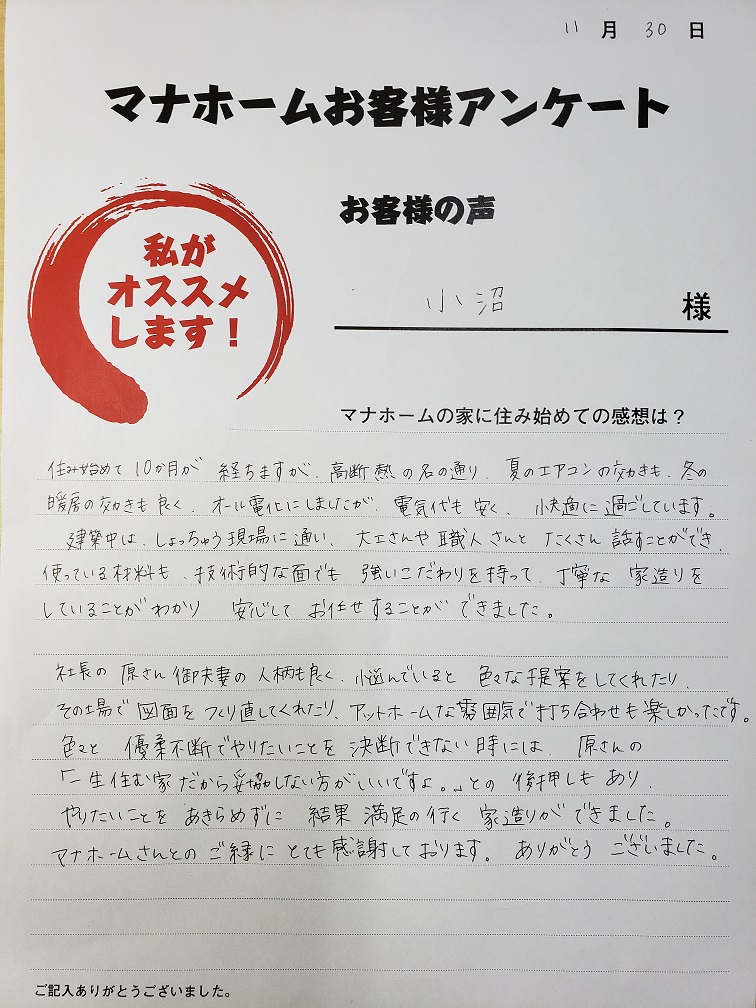 11月30日
マナホームお客様アンケート
お客様の声
私が
オススメ
します！
小沼 様
マナホームの家に住み始めての感想は？
住み始めて10か月が 経ちますが、高断熱の名の通り、夏のエアコンの効きも、冬の
暖房の効きも良く、オール電化にしましたが、電気代も安く、快適に過ごしています。
建築中は、しょっちゅう現場に通い、大工さんや職人さんと たくさん話すことができ、
使っている材料も、技術的な面でも 強いこだわりを持って、丁寧な 家造りを
していることがわかり 安心して お任せすることが できました。
社長の 原さん御夫妻の人柄も良く、悩んでいると 色々な提案をしてくれたり、
その場で 図面を つくり直してくれたり、アットホームな雰囲気で打ち合わせも楽しかったです。
色々と 優柔不断でやりたいことを 決断できない時には、原さんの
「一生住む家だから妥協しない方がいいですよ。」との 後押しもあり、
やりたいことを あきらめずに 結果 満足の行く 家造りが できました。
マナホームさんとの ご縁に とても感謝しております。 ありがとう ございました。
ご記入ありがとうございました。